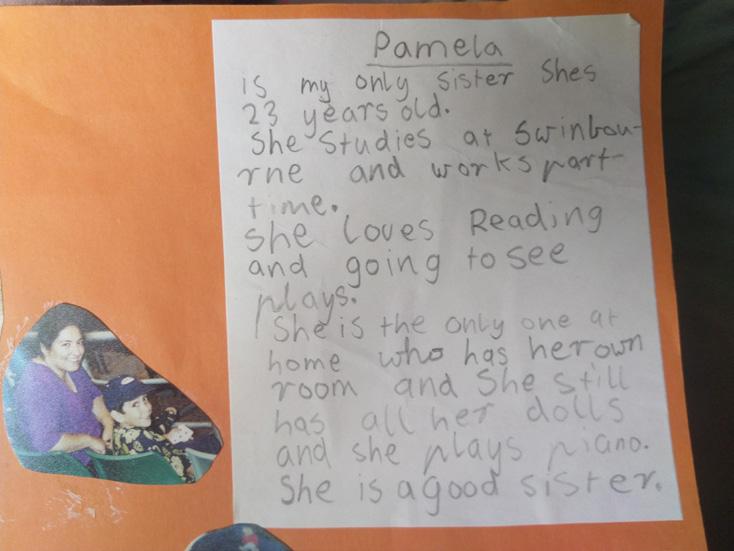 Pamela
is my only sister Shes
23 years old.
She Studies at Swinbou-
rne and works part-
time.
She loves Reading
and going to see
plays.
She is the only one at
home who has her own
room and She still
has all her dolls
and she plays piano.
She is a good sister.